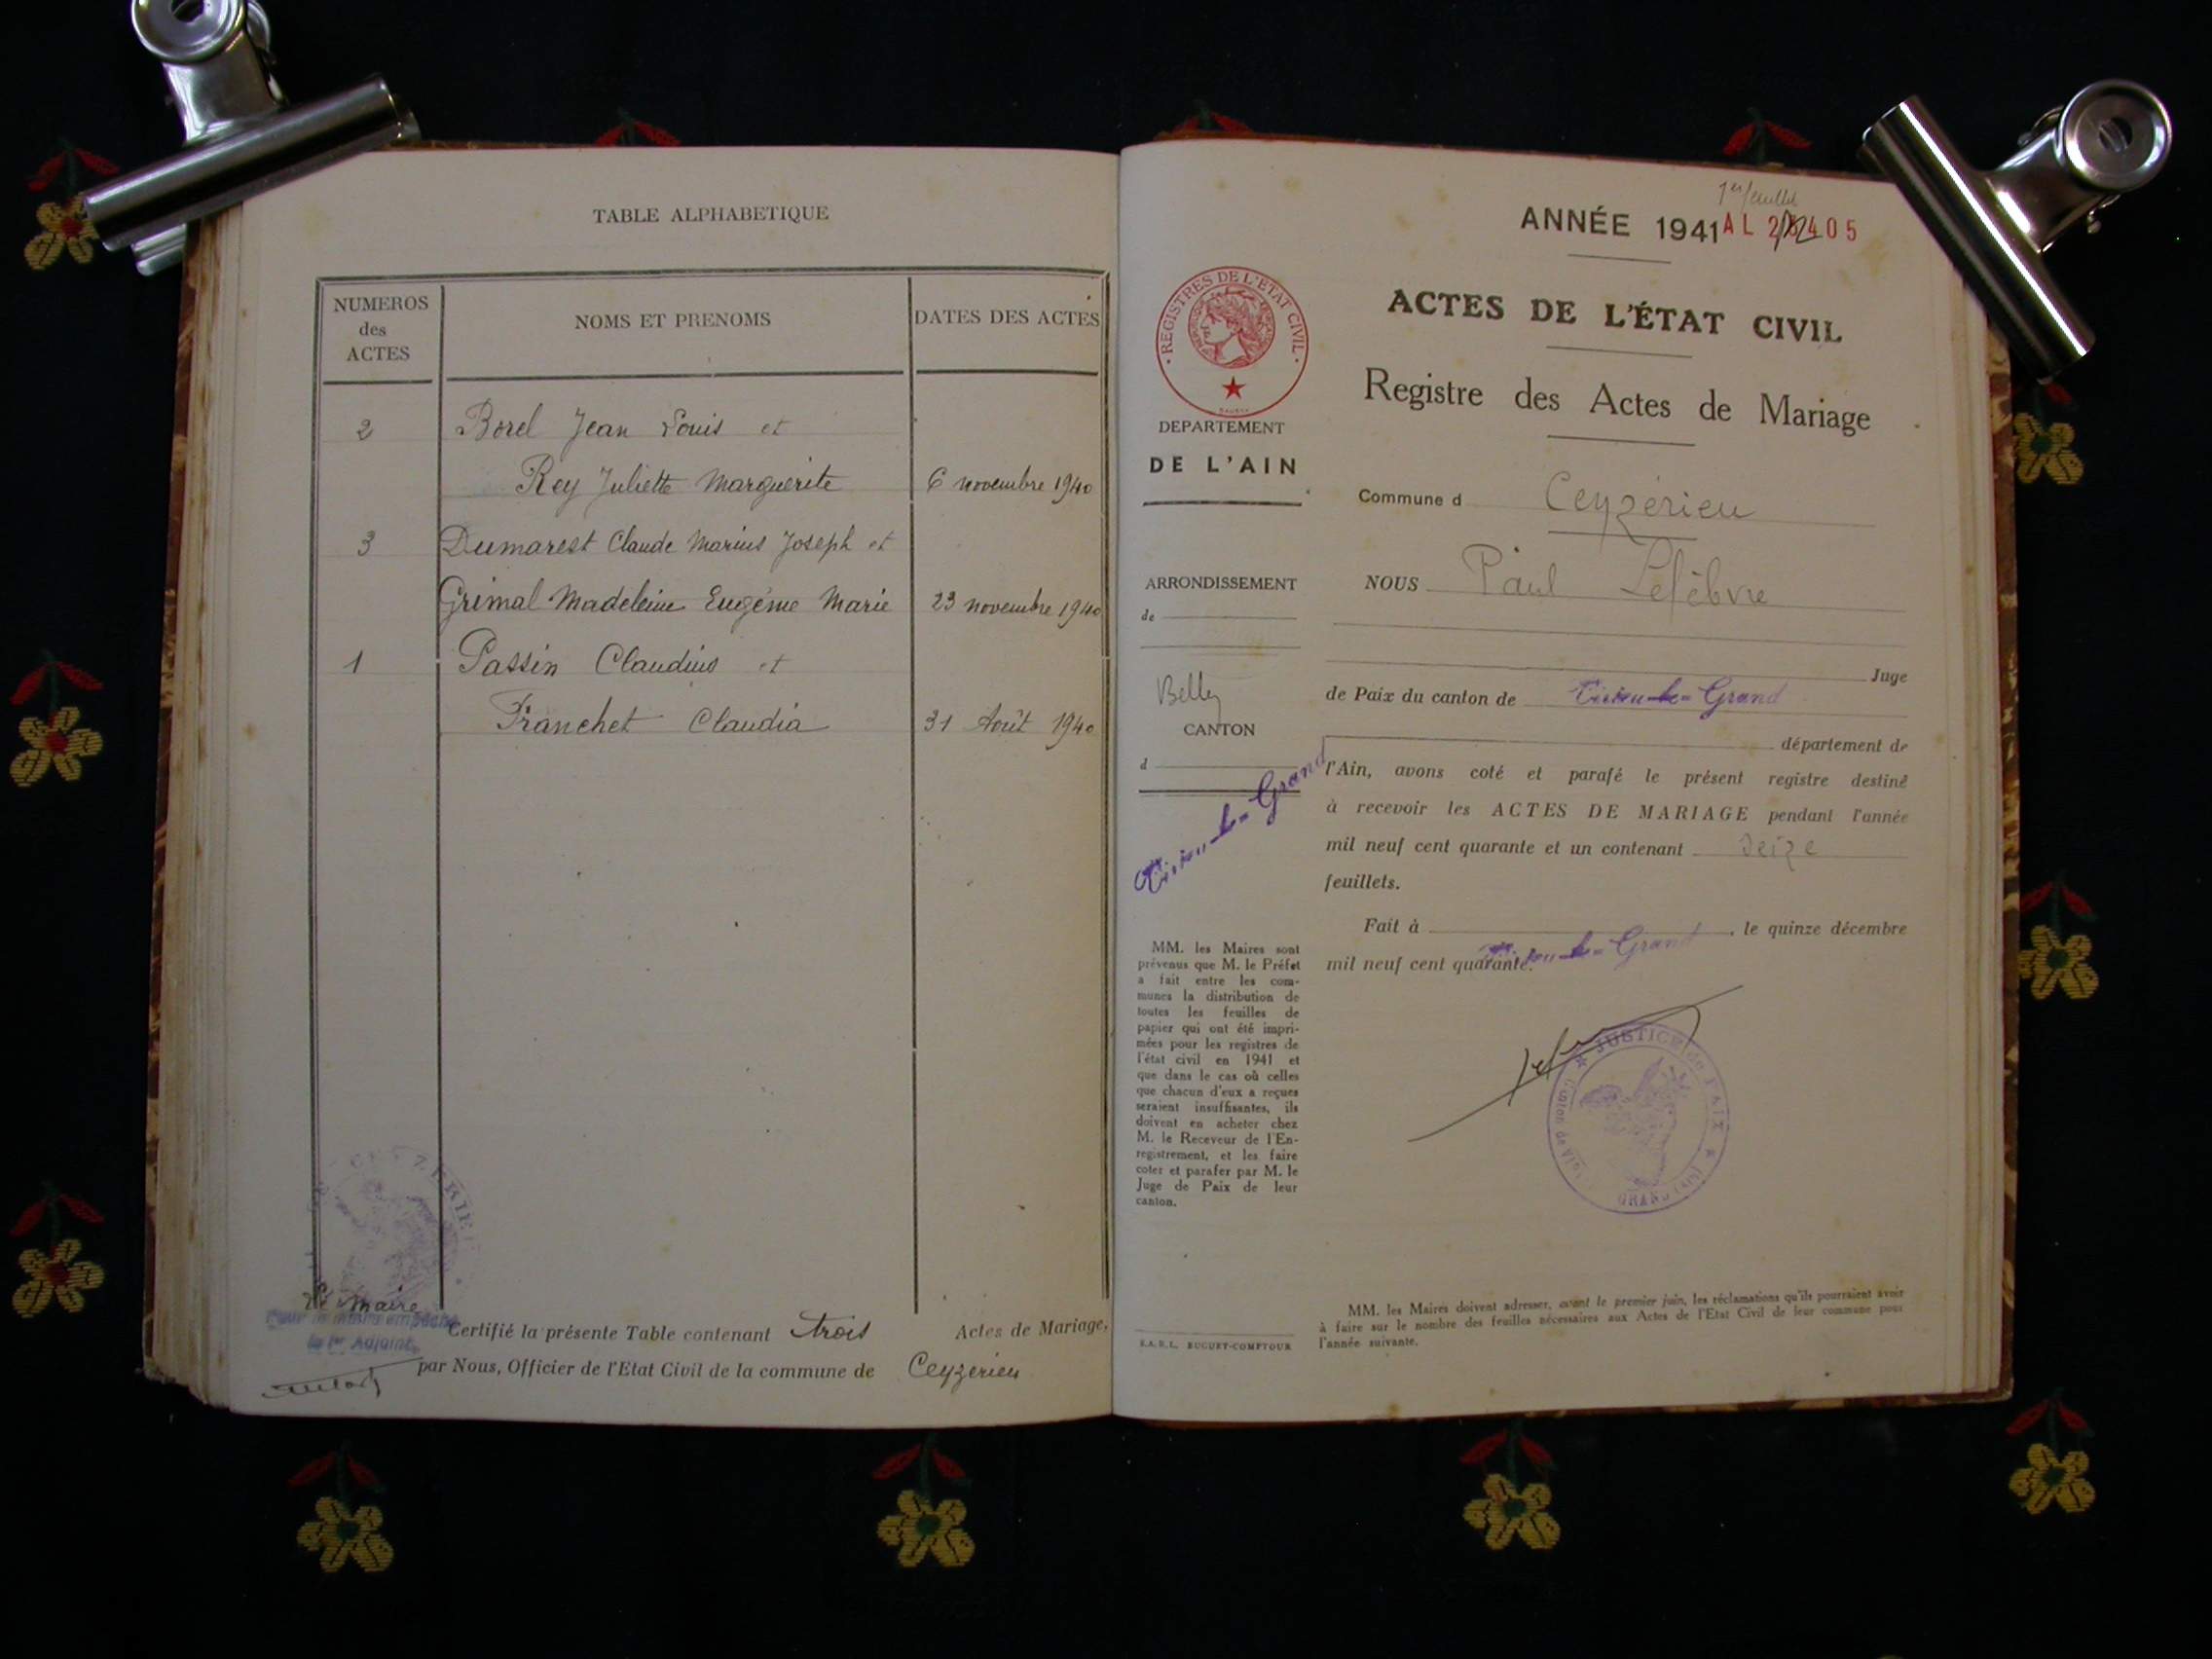 TABLE ALPHABETIQUE
NUMEROS
des
ACTES
NOMS ET PRENOMS
DATES DES ACTES
2 Borel Jean Louis et
Rey Juliette Marguerite 6 novembre 1940
3 Dumarest Claude Marius Joseph et
Grimal Madeleine Eugénie Marie 23 novembre 1940
1 Passin Claudius et
Franchet Claudia 31 Août 1940
Le Maire
Pour le maire empêché
le 1er Adjoint
Certifié la présente Table contenant trois Actes de Mariage,
par Nous, Officier de l'Etat Civil de la commune de Ceyzerieu
1er feuillet
ANNÉE 1941 AL 405
REGISTRES DE L'ETAT CIVIL
DEPARTEMENT
DE L'AIN
ARRONDISSEMENT
de
Belley
CANTON
d
Virieu-le-Grand
MM. les Maires sont
prévenus que M. le Préfet
a fait entre les com-
munes la distribution de
toutes les feuilles de
papier qui ont été impri-
mées pour les registres de
l'état civil en 1941 et
que dans le cas où celles
que chacun d'eux a reçues
seraient insuffisantes, ils
doivent en acheter chez
M. le Receveur de l'En-
registrement, et les faire
coter et parafer par M. le
Juge de Paix de leur
canton.
S.A.R.L. BUGUET-COMPTOUR
ACTES DE L'ÉTAT CIVIL
Registre des Actes de Mariage
Commune d Ceyzérieu
NOUS Paul Lefèbvre
Juge
de Paix du canton de Virieu-le-Grand
département de
l'Ain, avons coté et parafé le présent registre destiné
à recevoir les ACTES DE MARIAGE pendant l'année
mil neuf cent quarante et un contenant seize
feuillets.
Fait à Virieu-le-Grand, le quinze décembre
mil neuf cent quarante.
JUSTICE de PAIX
Canton de
GRAND (Ain)
MM. les Maires doivent adresser, avant le premier juin, les réclamations qu'ils pourraient avoir
à faire sur le nombre des feuilles nécessaires aux Actes de l'Etat Civil de leur commune pour
l'année suivante.